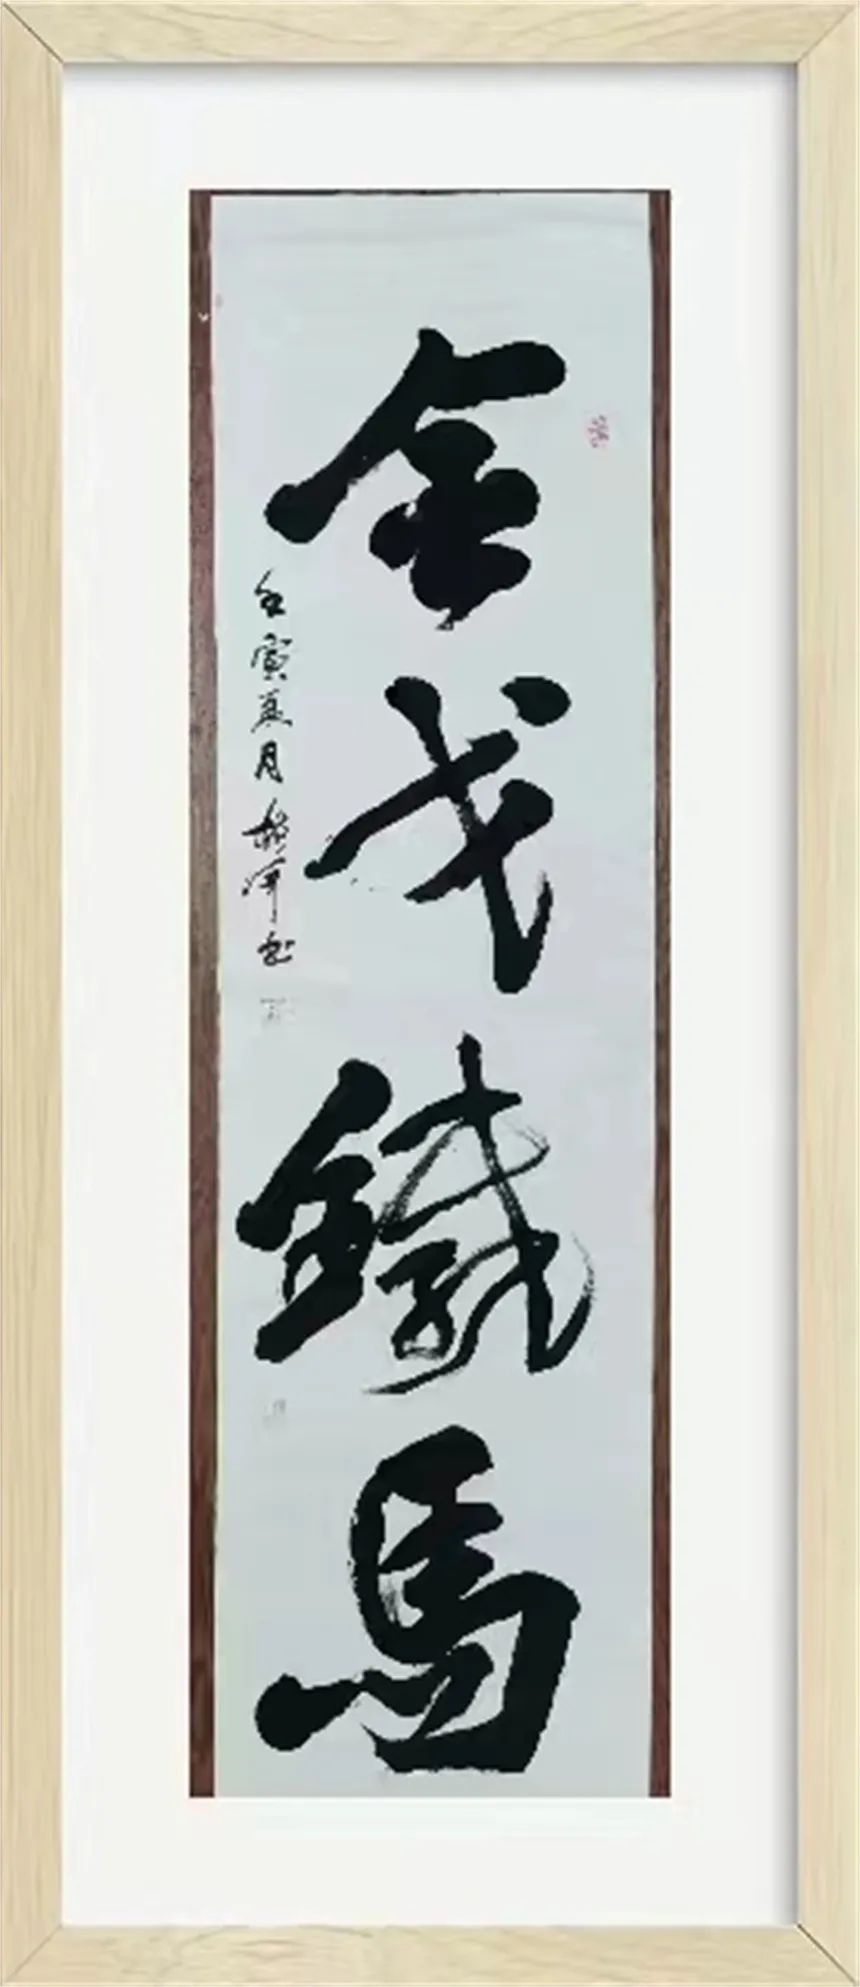 金戈鐵馬
壬寅夏月
書